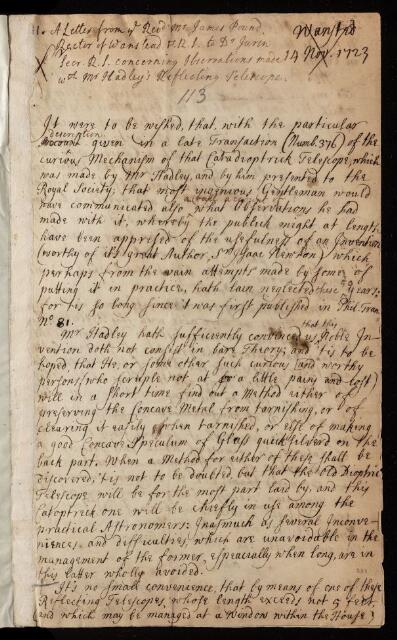 1. A Letter from yͤ Revd Mr. James Pound
Rector of Wanstead F.R.S. to Dr Jurin
Secr R.S. concerning Observations made
wth Mr Hadley's Reflecting Telescope.
Wansted
14 Nov. 1723
113
It were to be wished, that, with the particular
description
account given in a late Transaction (Numb. 376) of the
curious Mechanism of that Catadioptrick Telescope, which
was made by Mr Hadley, and by him presented to the
Royal Society; that most ingenious Gentleman would
have communicated also what Observations he had
made with it, whereby the publick might at length
have been apprised of the usefulness of an Invention
(worthy of its great Author, Sr Isaac Newton) which
perhaps from the vain attempts made by some of
putting it in practice, hath lain neglected these Years;
for tis so long since it was first published in Phil. Tran.
No. 81.
that this
Mr Hadley hath sufficiently convinced us Noble In-
vention doth not consist in bare Theory; and 'tis to be
hoped that He, or some other such curious (and worthy
persons, who scruple not at a little pains and cost)
will in a short time find out a Method either of
preserving the Concave Metal from tarnishing, or of
clearing it easily when tarnished, or else of making
a good Concave Speculum of Glass quicksilverd on the
back part. When a Method for either of these shall be
discovered, 'tis not to be doubted but that the old Dioptric
Telescope will be for the most part laid by, and this
Catoptrick one will be chiefly in use among the
practical Astronomers: Inasmuch as several Inconve-
niences and difficulties, which are unavoidable in the
management of the former, especially when long, are in
this latter wholly avoided.
It's no small convenience, that by means of one of these
Reflecting Telescopes, whose length exceeds not 5 feet
(and which may be managed at a Window within the House)